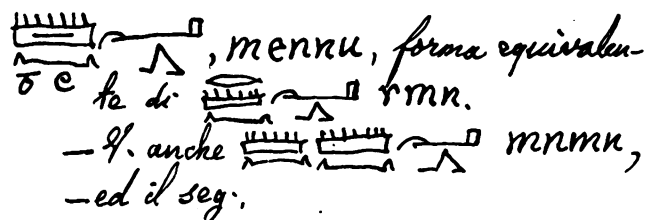 , mennu, forma equivalen-
te di rmn.
— V. anche mnmn,
— ed il seg.,